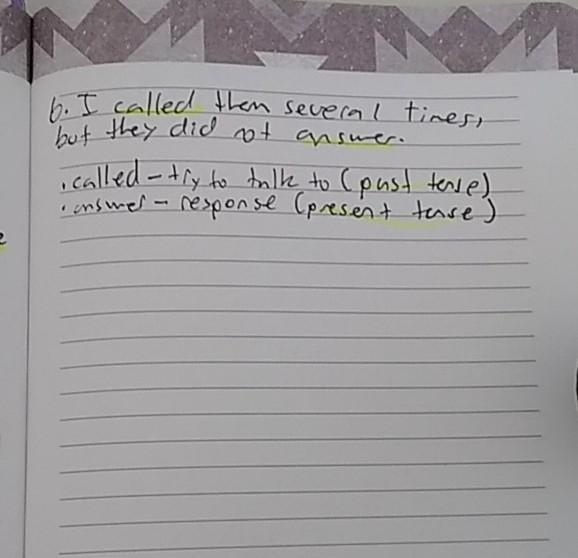 6. I called them several times,
but they did not answer.
. called - try to talk to (past tense)
. answer - response (present tense)
e